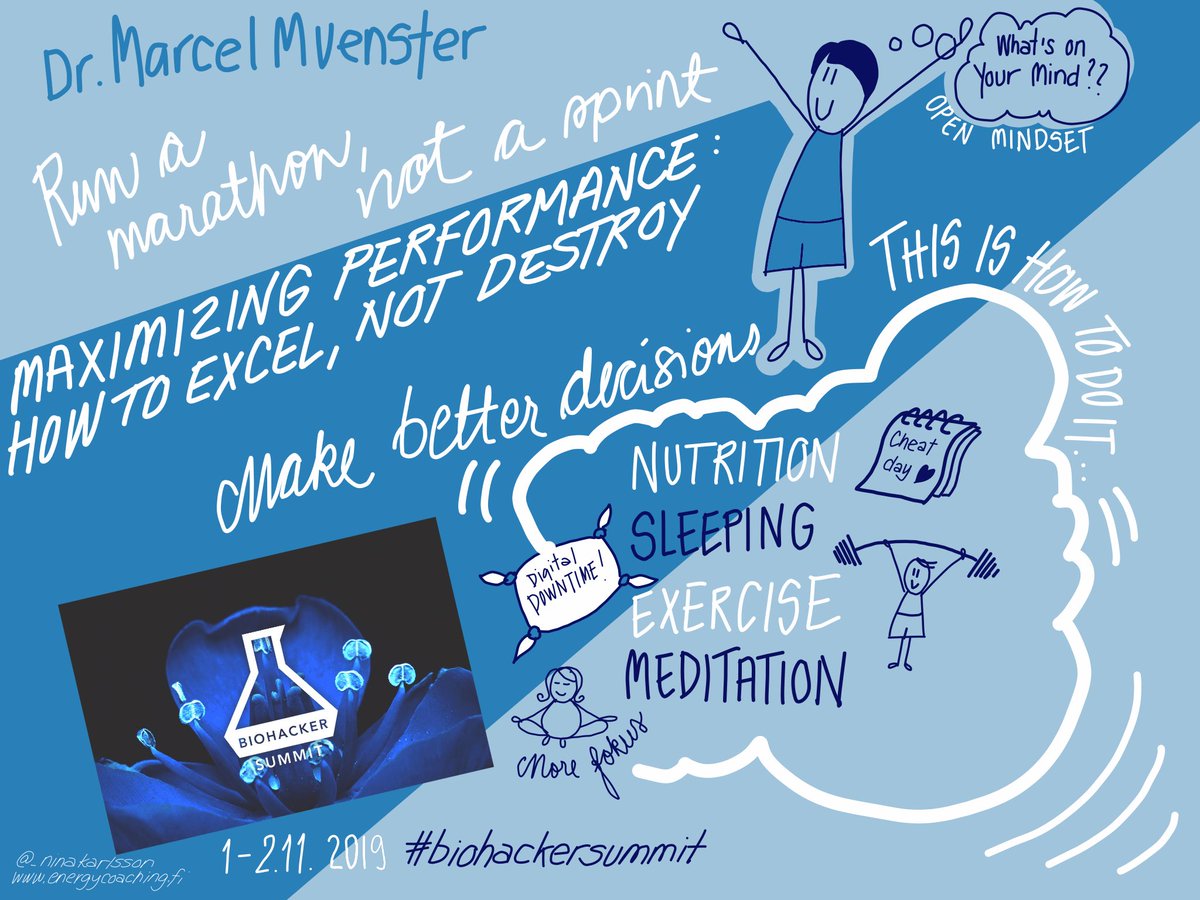 Dr. Marcel Muenster
Run a
marathon,
not a sprint
MAXIMIZING PERFORMANCE:
HOW TO EXCEL, NOT DESTROY
Make better decisions
What's on
Your Mind??
OPEN MINDSET
THIS IS HOW TO DO IT...
NUTRITION
SLEEPING
EXERCISE
MEDITATION
Cheat
day
Digital
DOWNTIME!
More fokus
BIOHACKER
SUMMIT
1-2.11. 2019 #biohackersummit
@_ninakarlsson
www.energycoaching.fi